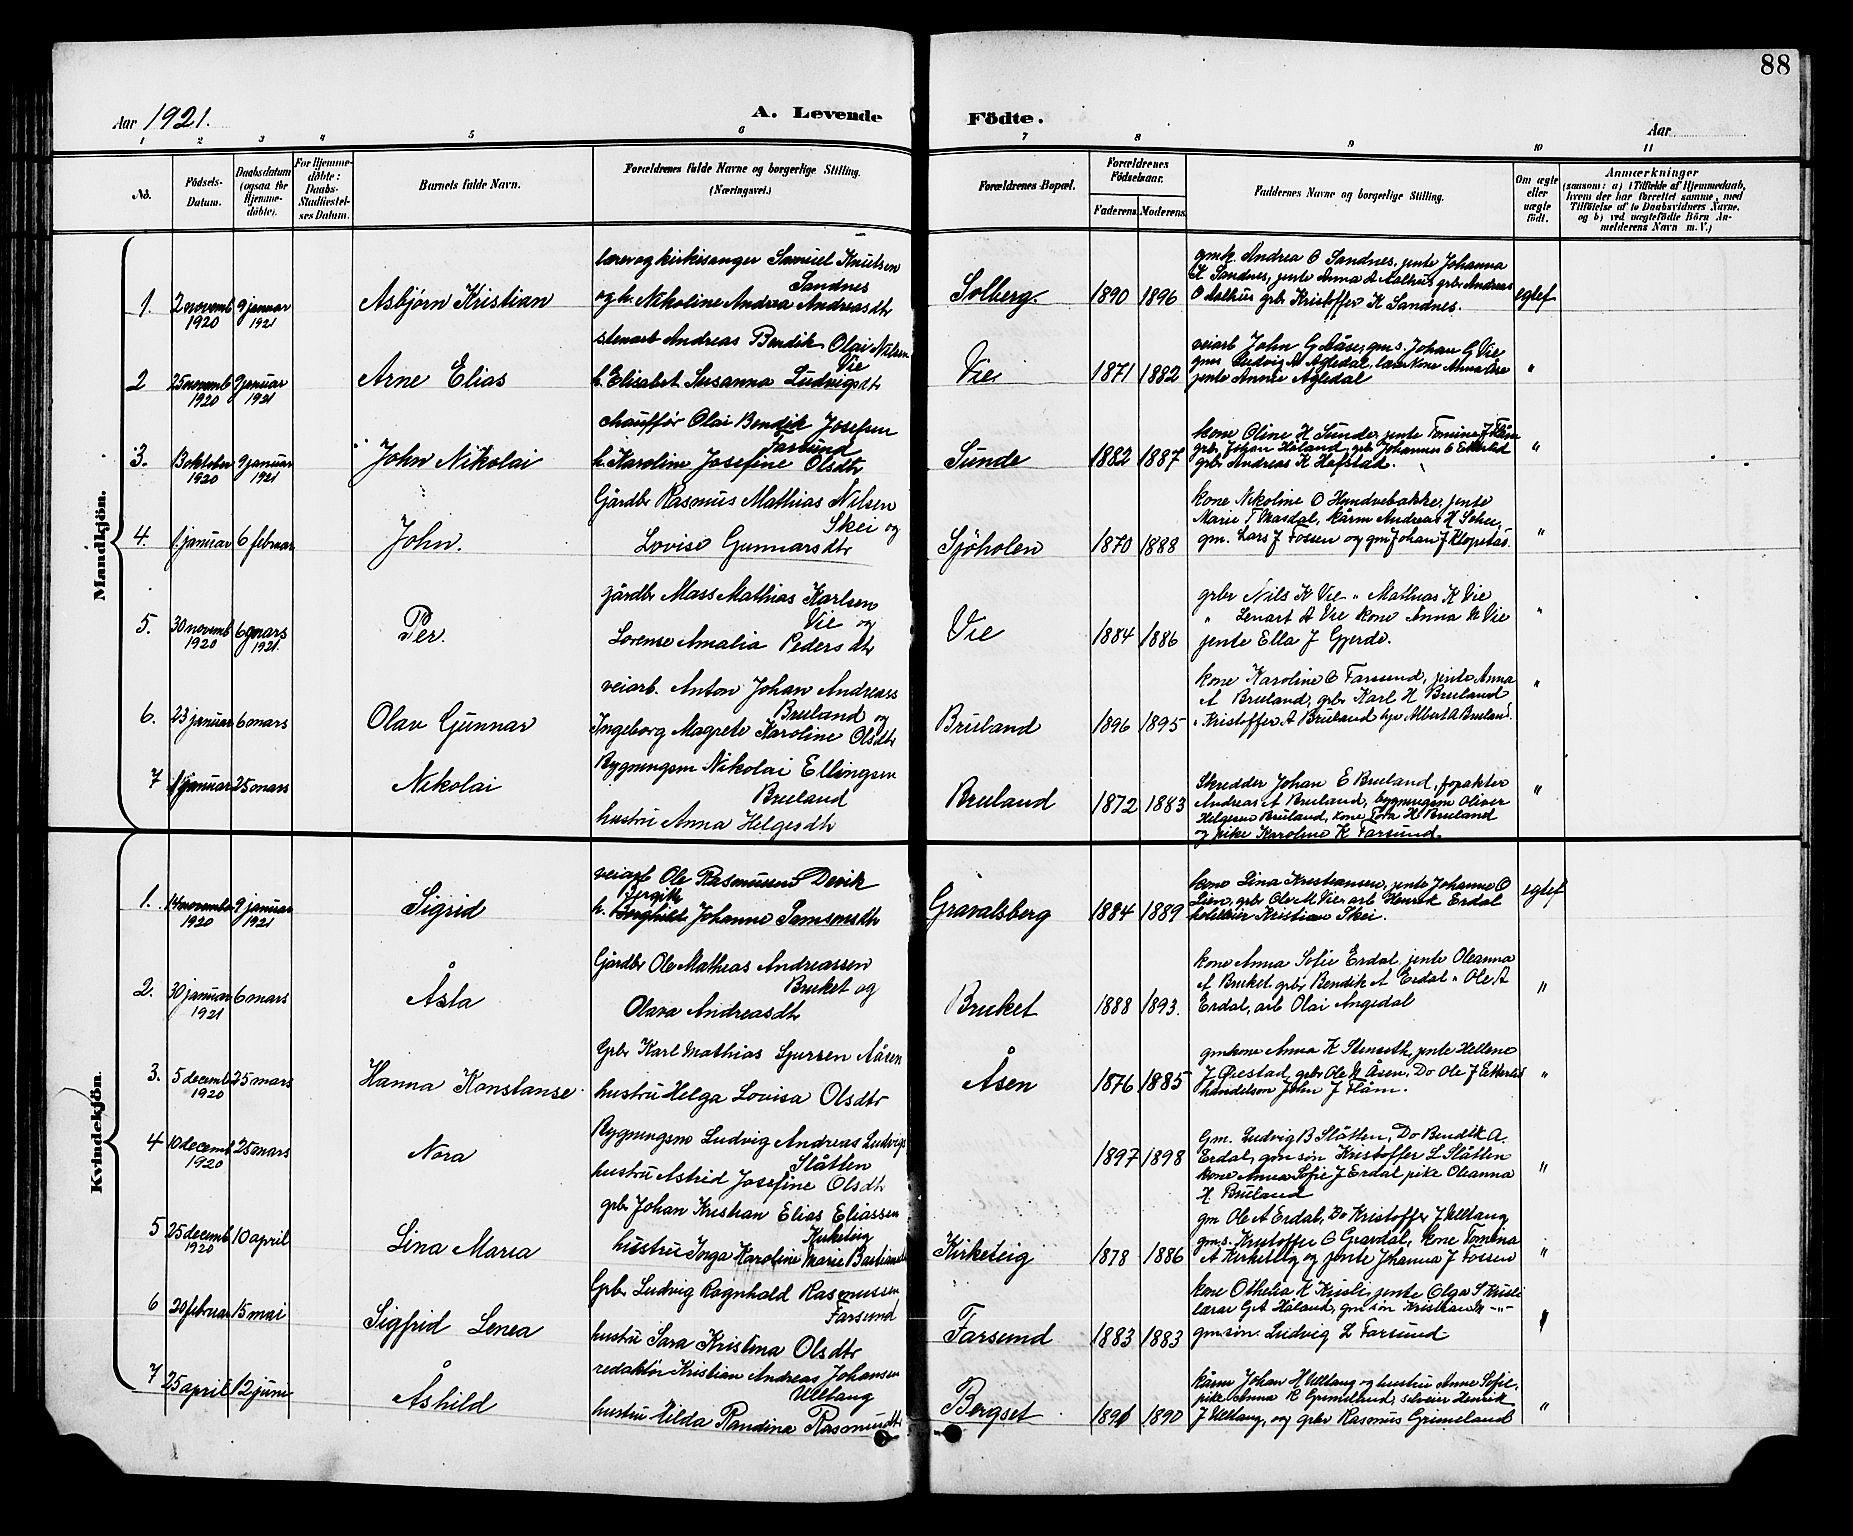 88
Aar 1921.
A. Levende Födte.
Aar
1 2 3 4 5 6 7 8 9 10 11
No.
Födsels-Datum.
Daabsdatum (ogsaa for Hjemme-döbte).
For Hjemme-döbte: Daabs-Stadfæstelses Datum.
Barnets fulde Navn.
Forældrenes fulde Navne og borgerlige Stilling. (Næringsvei.)
Forældrenes Bopæl.
Forældrenes Födselsaar.
Faderens. Moderens.
Faddernes Navne og borgerlige Stilling.
Om ægte eller uægte födt.
Anmærkninger
(saasom: a) i Tilfælde af Hjemmedaab, hvem der har forrettet samme, med Tilföielse af to Daabsvidners Navne, og b) ved uægtefödte Börn Anmelderens Navn m. V.)
Mandkjön.
lærer og kirkesanger Samuel Knutsen
Sandnes
1. 2 novemb 1920 9 januar 1921 Asbjørn Kristian og h. Nikoline Andrea Andreasdtr Solberg. 1890 1896
gmk. Andrea O Sandnes, jente Johanna
K Sandnes, jente Anna A Aalhus grbr Andreas
O Aalhus grbr Kristoffer K Sandnes. egtef
stenarb Andreas Bendik Olai Nilsen
Vie
2 25 novemb 1920 9 januar 1921 Arne Elias h. Elisabet Susanna Ludvigsdtr Vie 1871 1882
veiarb John G Åase, gm.s. Johan G Vie
gms Ludvig A Agledal, lærerkone Anna Åse
jente Annie Agledal "
chauffør Olai Bendik Josefsen
Farsund
3. 13 oktobr 1920 9 januar 1921 John Nikolai h. Karoline Josefine Olsdtr Sunde 1882 1887
kone Oline H Sunde, jente Tomine J
grbr Johan Håland, grbr Johannes O Etterlid
grbr Andreas K Hafstad. "
Gårdbr Rasmus Mathias Nilsen
Skei og
4. 1 januar 6 februar John. Lovise Gunnarsdtr Sjøholen 1870 1888
kone Nikoline O Hundvebakke, jente
Marie T Masdal, kårm Andreas H
gm. Lars J Fossen og gm Johan J Klopstas. "
gårdbr Mass Mathias Karlsen
Vie og
5. 30 novemb 1920 6 mars 1921. Per. Lorense Amalia Pedersdtr Vie 1884 1886
grbr Nils K Vie " Mathias K Vie
" Lenart A Vie kone Anna N Vie
jente Ella J Gjerde. "
veiarb. Anton Johan Andreass
Bruland og
6. 23 januar 6 mars Olav Gunnar Ingeborg Magrete Karoline Olsdtr Bruland 1896 1895
kone Karoline O Farsund, jente Anna
A Bruland, grbr Karl H Bruland
" Kristoffer A Bruland Albert A Bruland. "
Bygningsm Nikolai Ellingsen
Bruland
7 1 januar 25 mars Nikolai hustru Anna Helgesdtr Bruland 1872 1883
Skredder Johan E Bruland, forpakter
Andreas A Bruland, bygningsm Oliver
Helgesen Bruland, kone Tora H Bruland
og pike Karoline K Farsund. "
Kvindekjön.
veiarb Ole Rasmussen Devik
Bergithe
1. 14 novembr 1920 9 januar 1921 Sigrid h. Borghild Johanne Samsonsdtr Gravalsberg 1884 1889
kone Lina Kristiansen, jente Johanne O
Lien, grbr Ole M Vie, arb Henrik Erdal
hoteleier Kristian Skei. egtef
Gårdbr Ole Mathias Andreassen
Bruket og
2. 30 januar 1921 6 mars Åsta Olava Andreasdtr Bruket 1888 1893.
kone Anna Sofie Erdal, jente Oleanna
A Bruket grbr Bendik A Erdal " Ole A
Erdal, arb Olai Angedal "
Grbr Karl Mathias Sjursen Aåsen
3. 5 decemb 1920 25 mars Hanna Konstanse. hustru Helga Lovisa Olsdtr Åsen 1876 1885
gmkone Anna K Stenseth, jente Hellene
J Øiestad, grbr Ole N Åsen, Do Ole J Etterlid
handelsm John J Flåm. "
Bygningsm Ludvig Andreas Ludvigs
Slåtten
4 10 decemb 1920 25 mars Nora hustru Astrid Josefine Olsdtr 1897 1898
Gm. Ludvig B Slåtten, Do Bendik A.
Erdal, gm søn Kristoffer L Slåtten
kone Anna Sofie J Erdal pike Oleanna
H Bruland "
grbr Johan Kristian Elias Eliassen
Kirketeig
5 25 decemb 1920 10 april Lina Maria hustru Inga Karoline Marie Bastiansdtr Kirketeig 1878 1886
gm Ole A Erdal, Do Kristoffer J Ulltang
gm.s. Kristoffer O Gravdal, kone Tomina
A Kirketeig og jente Johanna J Fossen "
Grbr Ludvig Ragnhold Rasmussen
Farsund
6 20 februar 15 mai Sigfrid Lenea hustru Sara Kristina Olsdtr Farsund 1883 1883
kone Othelia K Kusli, jente Olga S Kusli
lærar G A Håland, gm søn Kristian K -"-
gm søn. Ludvig L Farsund "
redaktør Kristian Andreas Johansen
Ulltang
7 25 april 12 juni Åshild hustru Hilda Randina Rasmusdtr Bergset 1891 1890
kårm Johan H Ulltang og hustru Anne Sofie,
pike Anna R Grimeland, Henrik
J Ulltang, og grbr Rasmus Grimeland "